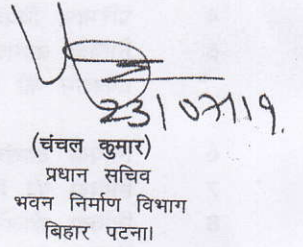 23/07/19.
(चंचल कुमार)
प्रधान सचिव
भवन निर्माण विभाग
बिहार पटना।